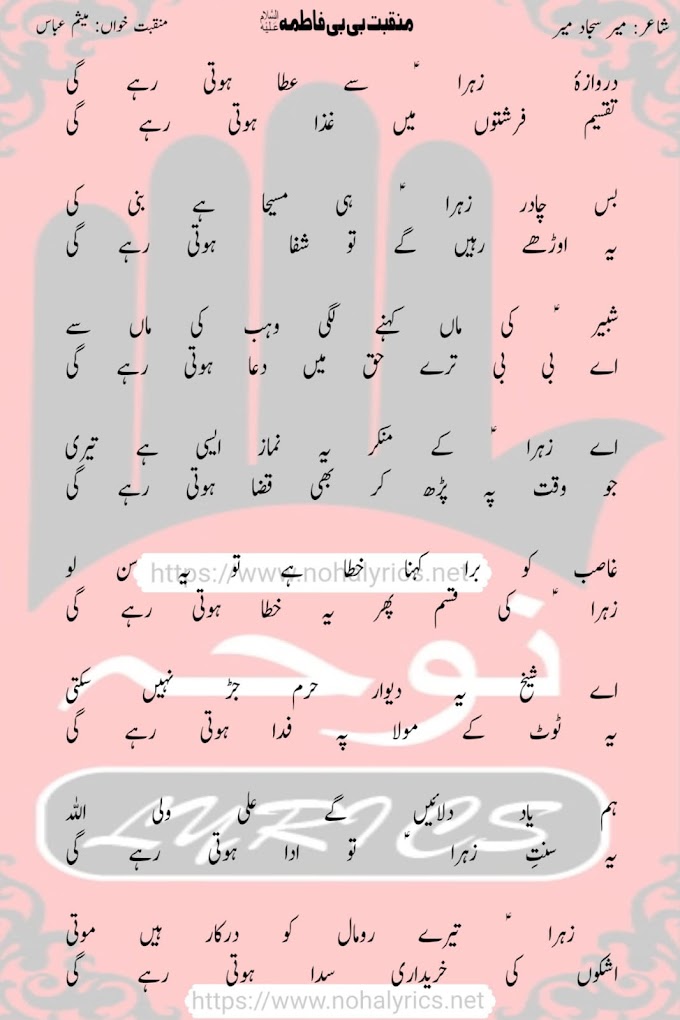 شاعر: میر سجاد میر
منقبت بی بی فاطمه علیہ السلام
منقبت خواں: میثم عباس
دروازۂ زہرا ؑ سے عطا ہوتی رہے گی
تقسیم فرشتوں میں غذا ہوتی رہے گی
بس چادر زہرا ؑ ہی مسیحا ہے بنی کی
یہ اوڑھے رہیں گے تو شفا ہوتی رہے گی
شبیر ؑ کی ماں کہنے لگی وہب کی ماں سے
اے بی بی ترے حق میں دعا ہوتی رہے گی
اے زہرا ؑ کے منکر یہ نماز ایسی ہے تیری
جو وقت پہ پڑھ کر بھی قضا ہوتی رہے گی
غاصب کو برا کہنا خطا ہے تو یہ سن لو
https://www.nohalyrics.net
زہرا ؑ کی قسم پھر یہ خطا ہوتی رہے گی
نوحہ
اے شیخ یہ دیوار حرم جڑ نہیں سکتی
یہ ٹوٹ کے مولا پہ فدا ہوتی رہے گی
ہم یاد دلائیں گے علی ولی اللہ
LYRICS
یہ سنتِ زہرا ؑ تو ادا ہوتی رہے گی
زہرا ؑ تیرے رومال کو درکار ہیں موتی
اشکوں کی خریداری سدا ہوتی رہے گی
https://www.nohalyrics.net